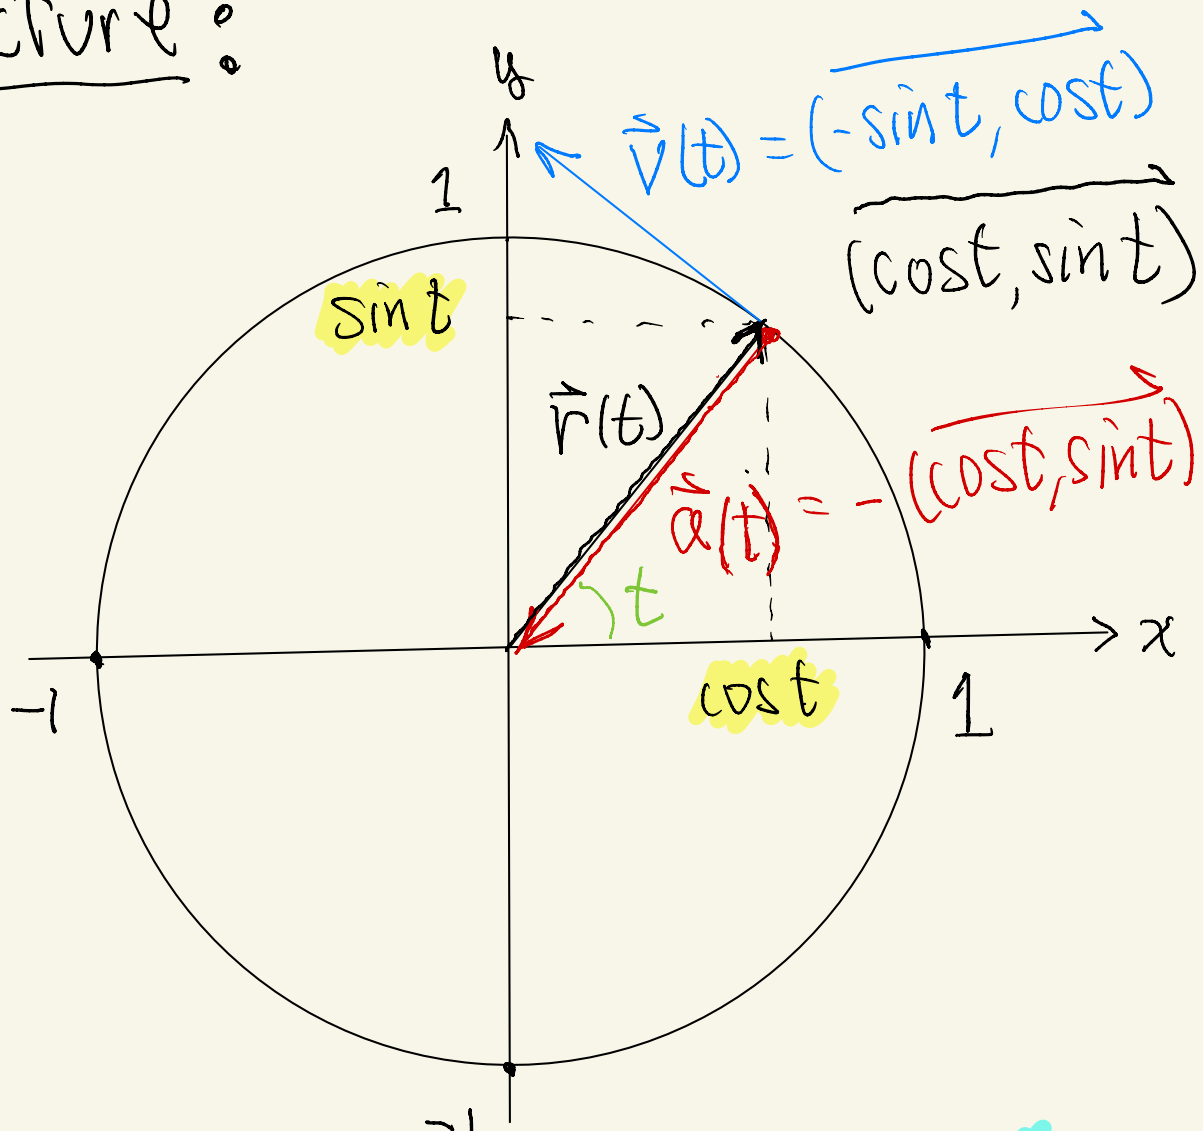 cture:
y
v⃗(t) = (-sin t, cos t)
1
(cos t, sin t)
sin t
r⃗(t)
a⃗(t) = -(cos t, sin t)
t
x
-1
cos t
1
-1